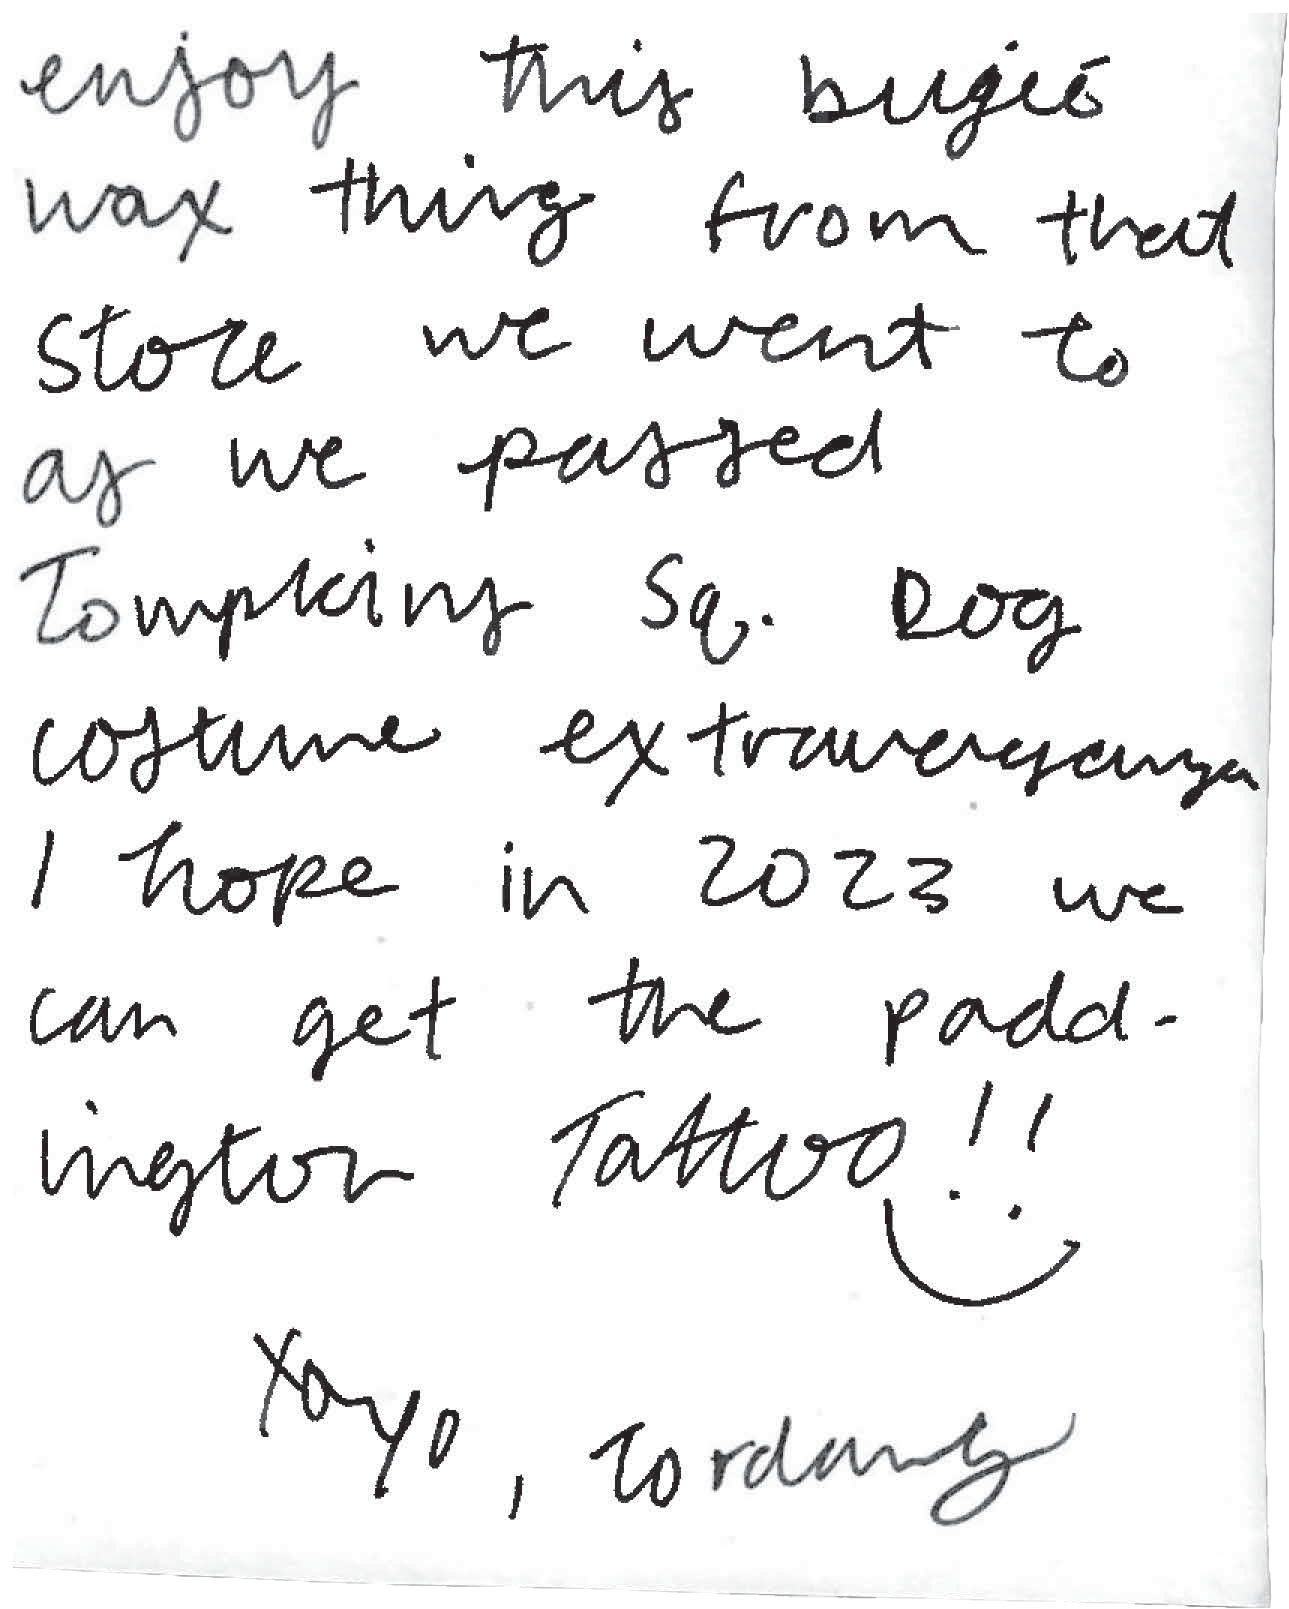 enjoy this bugié
wax thing from that
store we went to
as we passed
Tompkins Sq. Dog
costume extraverganza
I hope in 2023 we
can get the padd-
ington Tattoo!!
xoxo,